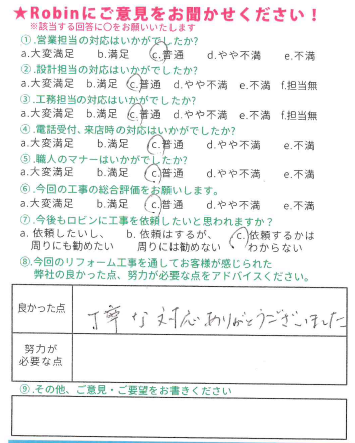 ★Robinにご意見をお聞かせください！
※該当する回答に〇をお願いいたします
①.営業担当の対応はいかがでしたか?
a.大変満足 b.満足 c.普通 d.やや不満 e.不満
②.設計担当の対応はいかがでしたか?
a.大変満足 b.満足 c.普通 d.やや不満 e.不満 f.担当無
③.工務担当の対応はいかがでしたか?
a.大変満足 b.満足 c.普通 d.やや不満 e.不満 f.担当無
④.電話受付、来店時の対応はいかがでしたか?
a.大変満足 b.満足 c.普通 d.やや不満 e.不満
⑤.職人のマナーはいかがでしたか?
a.大変満足 b.満足 c.普通 d.やや不満 e.不満
⑥.今回の工事の総合評価をお願いします。
a.大変満足 b.満足 c.普通 d.やや不満 e.不満
⑦.今後もロビンに工事を依頼したいと思われますか？
a. 依頼したいし、 b. 依頼はするが、 c.依頼するかは
周りにも勧めたい 周りには勧めない わからない
⑧.今回のリフォーム工事を通してお客様が感じられた
弊社の良かった点、努力が必要な点をアドバイスください。
良かった点
丁寧な対応ありがとうございました
努力が
必要な点
⑨.その他、ご意見・ご要望をお書きください